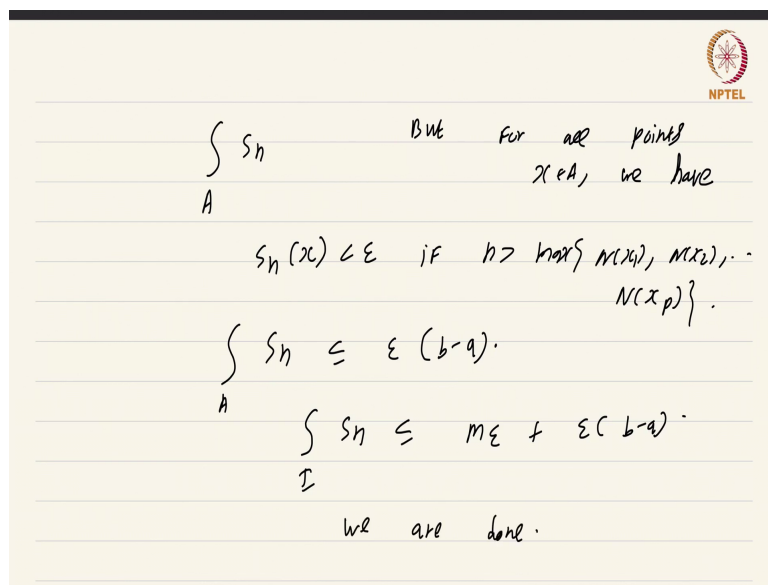 NPTEL
∫_A Sn But for all points
x ∈ A, we have
Sn(x) < ε if n > max{ N(x1), N(x2), ..
N(xp) } .
∫_A Sn ≤ ε (b-a).
∫_I Sn ≤ mε + ε(b-a).
we are done.